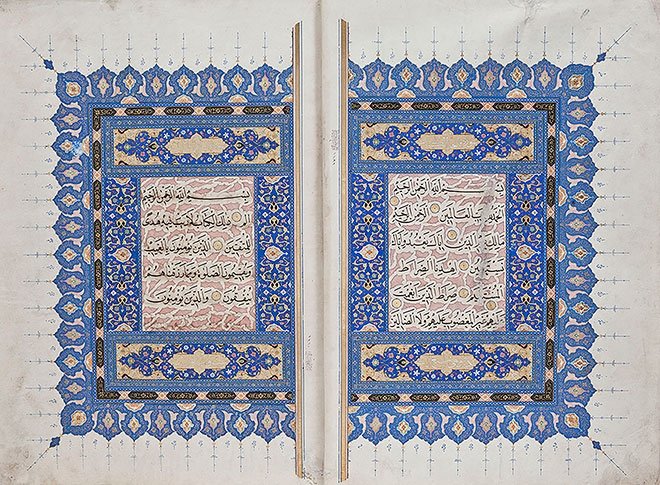 بِسْمِ اللَّهِ الرَّحْمَنِ الرَّحِيمِ
الْحَمْدُ لِلَّهِ رَبِّ الْعَالَمِينَ الرَّحْمَنِ الرَّحِيمِ
مَالِكِ يَوْمِ الدِّينِ إِيَّاكَ نَعْبُدُ وَإِيَّاكَ
نَسْتَعِينُ اهْدِنَا الصِّرَاطَ
الْمُسْتَقِيمَ صِرَاطَ الَّذِينَ أَنْعَمْتَ
عَلَيْهِمْ غَيْرِ الْمَغْضُوبِ عَلَيْهِمْ وَلَا الضَّالِّينَ
بِسْمِ اللَّهِ الرَّحْمَنِ الرَّحِيمِ
الم ذَلِكَ الْكِتَابُ لَا رَيْبَ فِيهِ هُدًى
لِلْمُتَّقِينَ الَّذِينَ يُؤْمِنُونَ بِالْغَيْبِ
وَيُقِيمُونَ الصَّلَوةَ وَمِمَّا رَزَقْنَاهُمْ
يُنْفِقُونَ وَالَّذِينَ يُؤْمِنُونَ